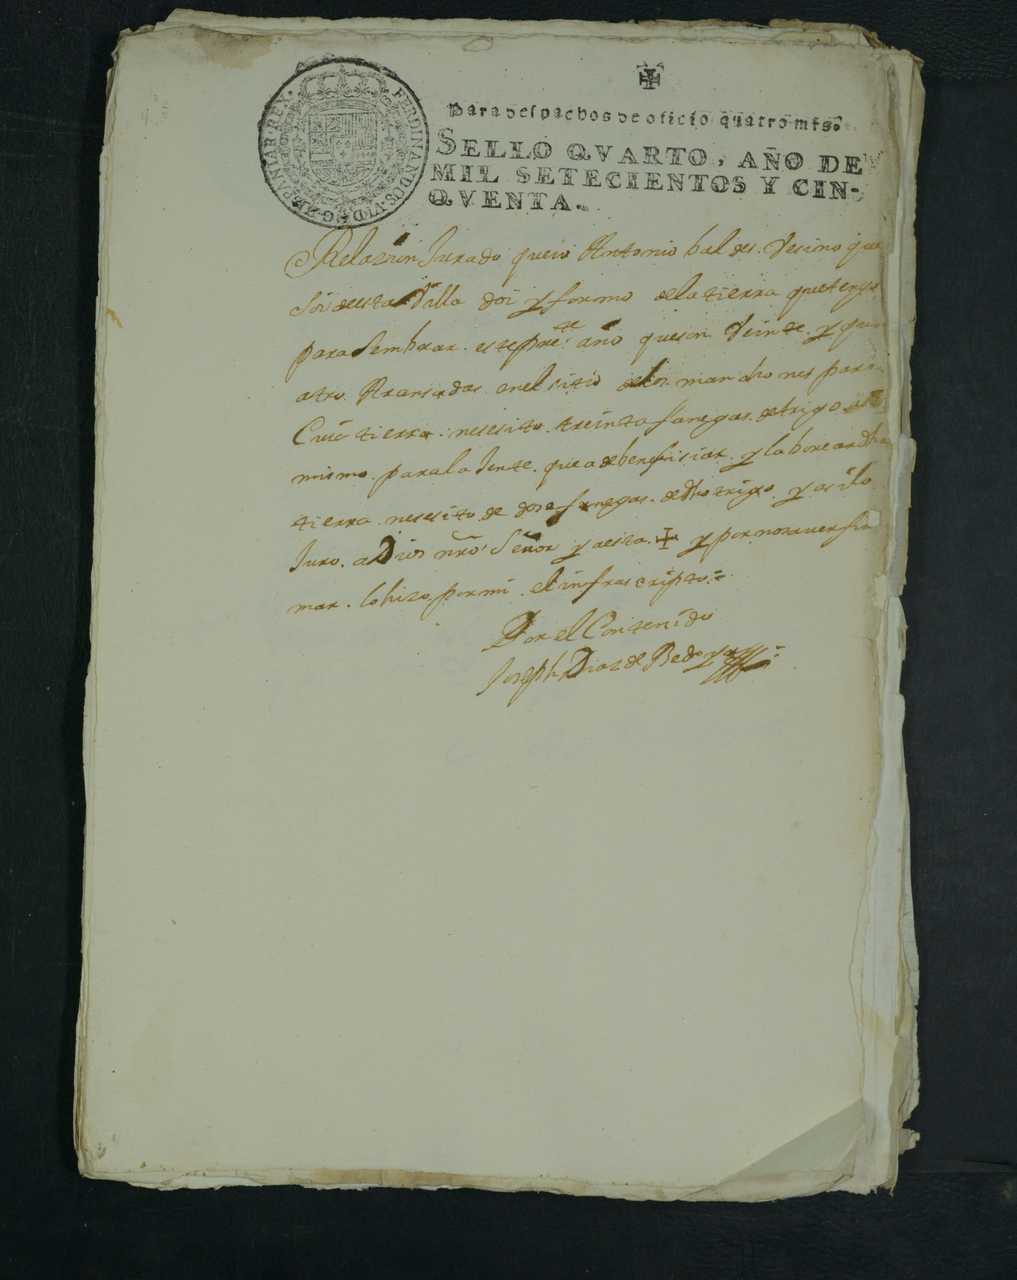 FERDINANDUS·VI·D·G·HISPANIAR·REX·
Para despachos de oficio quatro mrs.
SELLO QVARTO, AÑO DE
MIL SETECIENTOS Y CIN-
QVENTA.
Relazion Jurado queio Antonio baldes. Vesino que
Soi deesta Villa doi y formo dela tierra que tengo
para Sembrar. este pre.te año queson Veinte y qua
atro Aransadas enelsitio delos manchones para
Cuia tierra. nesesito. treinta fanegas. de trigo asi
mismo. parala Jente. que a de benefisiar. y laborear dha
tierra. nesesito de dose fanegas. de dho trigo. y asi lo
Juro. a Dios nro. Señor y aesta. + y por nosauer fir
mar. lo hizo por mi. el infrascripto =
Por el Contenido
Joseph Dias de Bedoya